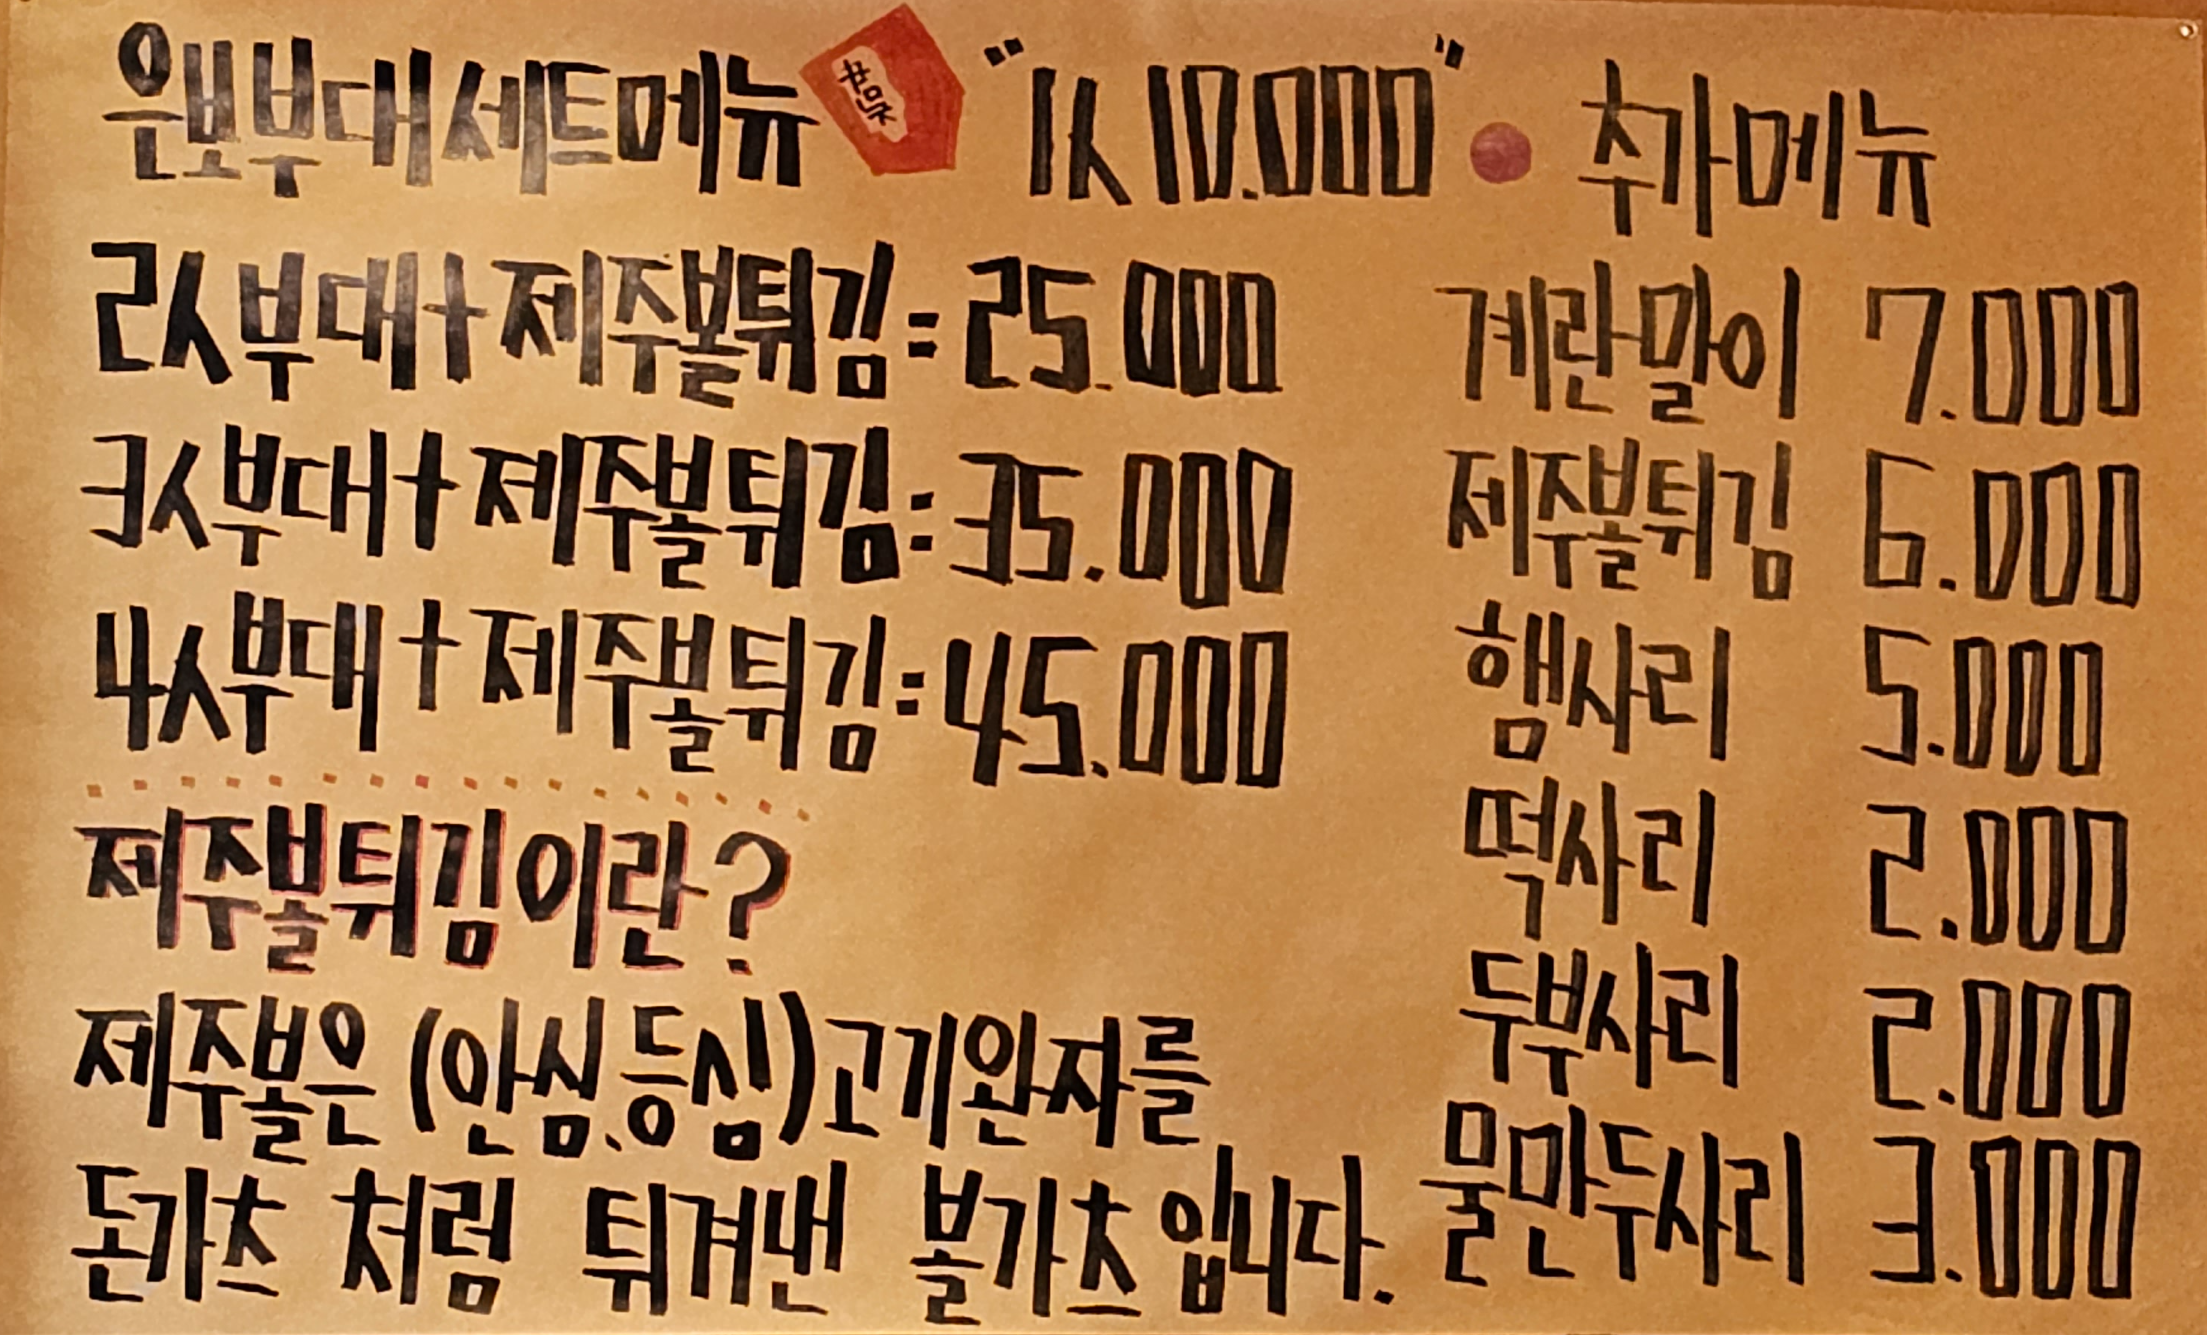 은보부대세트메뉴 "1人 10.000"
2人부대+제주볼튀김=25.000
3人부대+제주볼튀김=35.000
4人부대+제주볼튀김=45.000
제주볼튀김이란?
제주볼은 (안심.등심)고기완자를
돈가츠 처럼 튀겨낸 볼가츠입니다.
추가메뉴
계란말이 7.000
제주볼튀김 6.000
햄사리 5.000
떡사리 2.000
두부사리 2.000
물만두사리 3.000